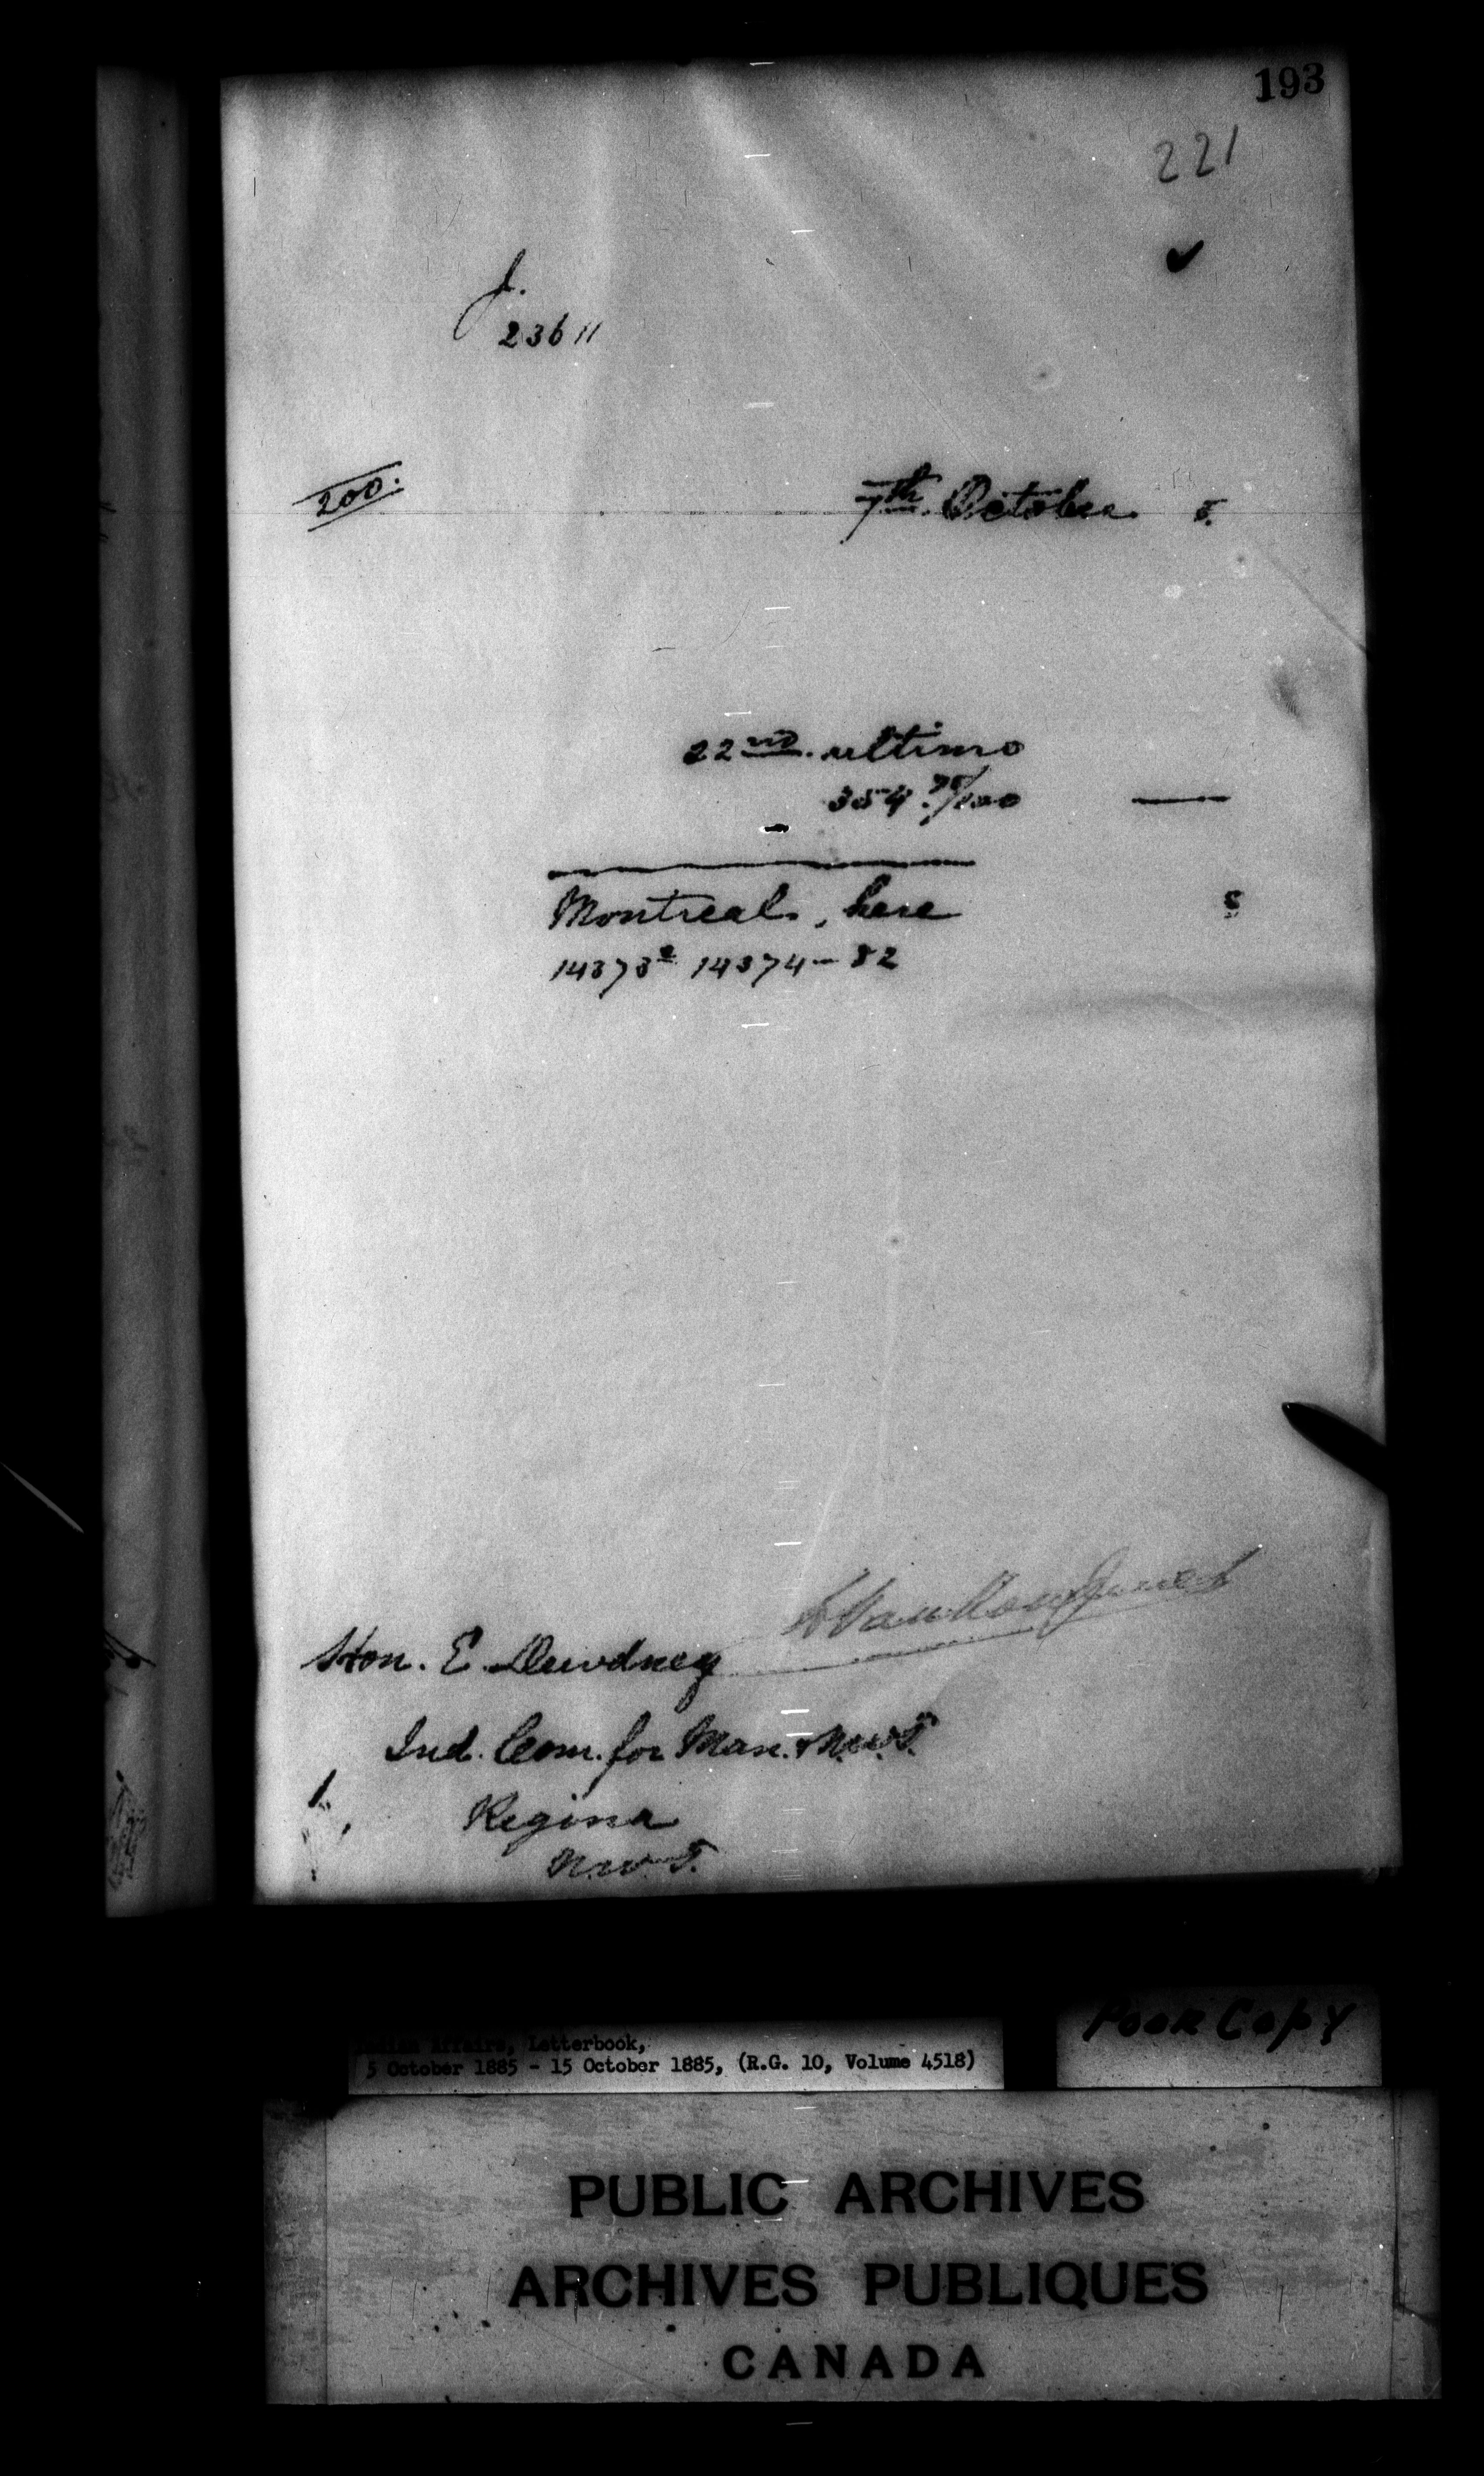 193
221
J.
23611
200.
7th. October 5.
22nd. ultimo
354 75/100 —
Montreal, here s
14373 & 14374 - 82
L VanKoughnet
Hon. E. Dewdney
Ind. Com. for Man. & N.W.T.
Regina
N.W.T.
Poor Copy
Indian Affairs, Letterbook,
5 October 1885 - 15 October 1885, (R.G. 10, Volume 4518)
PUBLIC ARCHIVES
ARCHIVES PUBLIQUES
CANADA